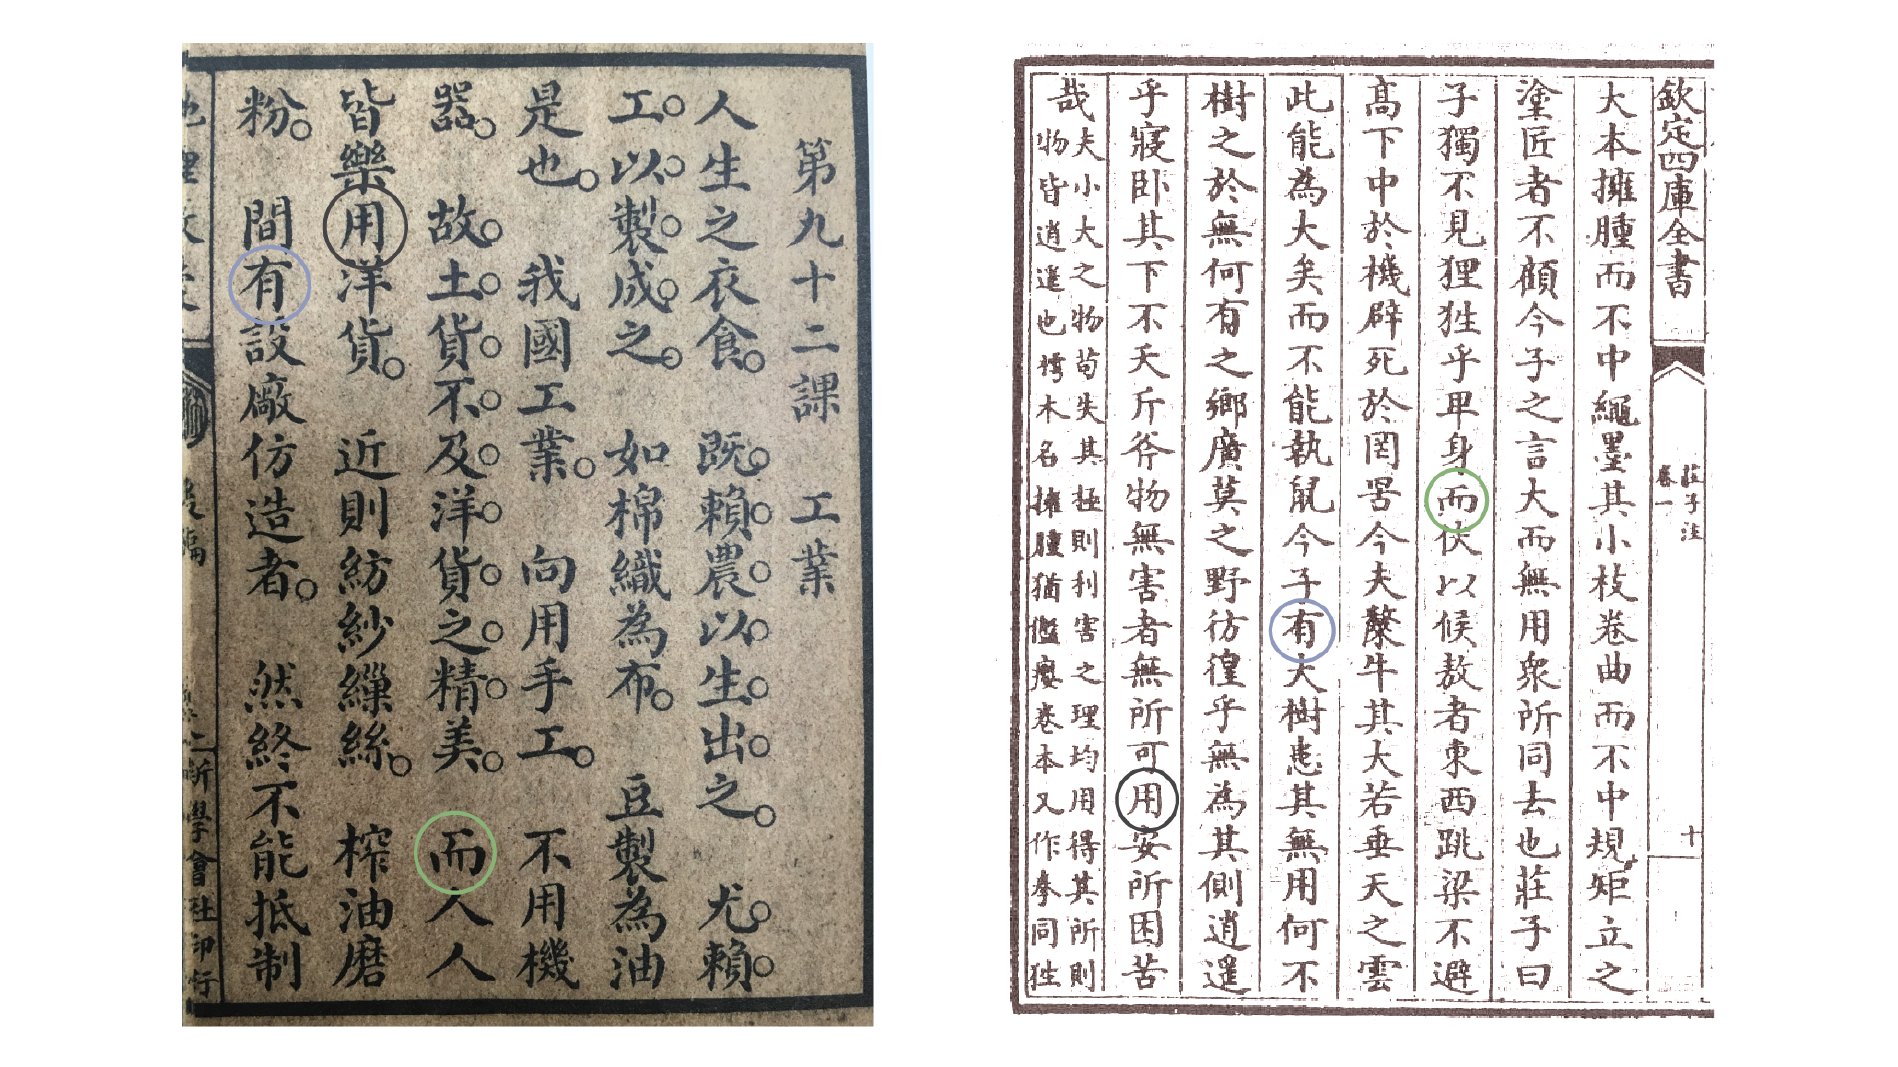 第九十二課 工業
人生之衣食。既賴農以生出之。尤賴
工以製成之。如棉織為布。豆製為油
是也。我國工業。向用手工。不用機
器。故土貨不及洋貨之精美。而人人
皆樂用洋貨。近則紡紗繅絲。榨油磨
粉。間有設廠仿造者。然終不能抵制
新學會社印行
欽定四庫全書
莊子注
卷一
十
大本擁腫而不中繩墨其小枝卷曲而不中規矩立之
塗匠者不顧今子之言大而無用衆所同去也莊子曰
子獨不見狸狌乎卑身而伏以候敖者東西跳梁不避
髙下中於機辟死於罔罟今夫斄牛其大若垂天之雲
此能為大矣而不能執鼠今子有大樹患其無用何不
樹之於無何有之鄉廣莫之野彷徨乎無為其側逍遥
乎寢卧其下不夭斤斧物無害者無所可用安所困苦
哉
夫小大之物茍失其極則利害之理均用得其所則
物皆逍遥也樗木名擁腫猶瘻卷本又作拳同狌